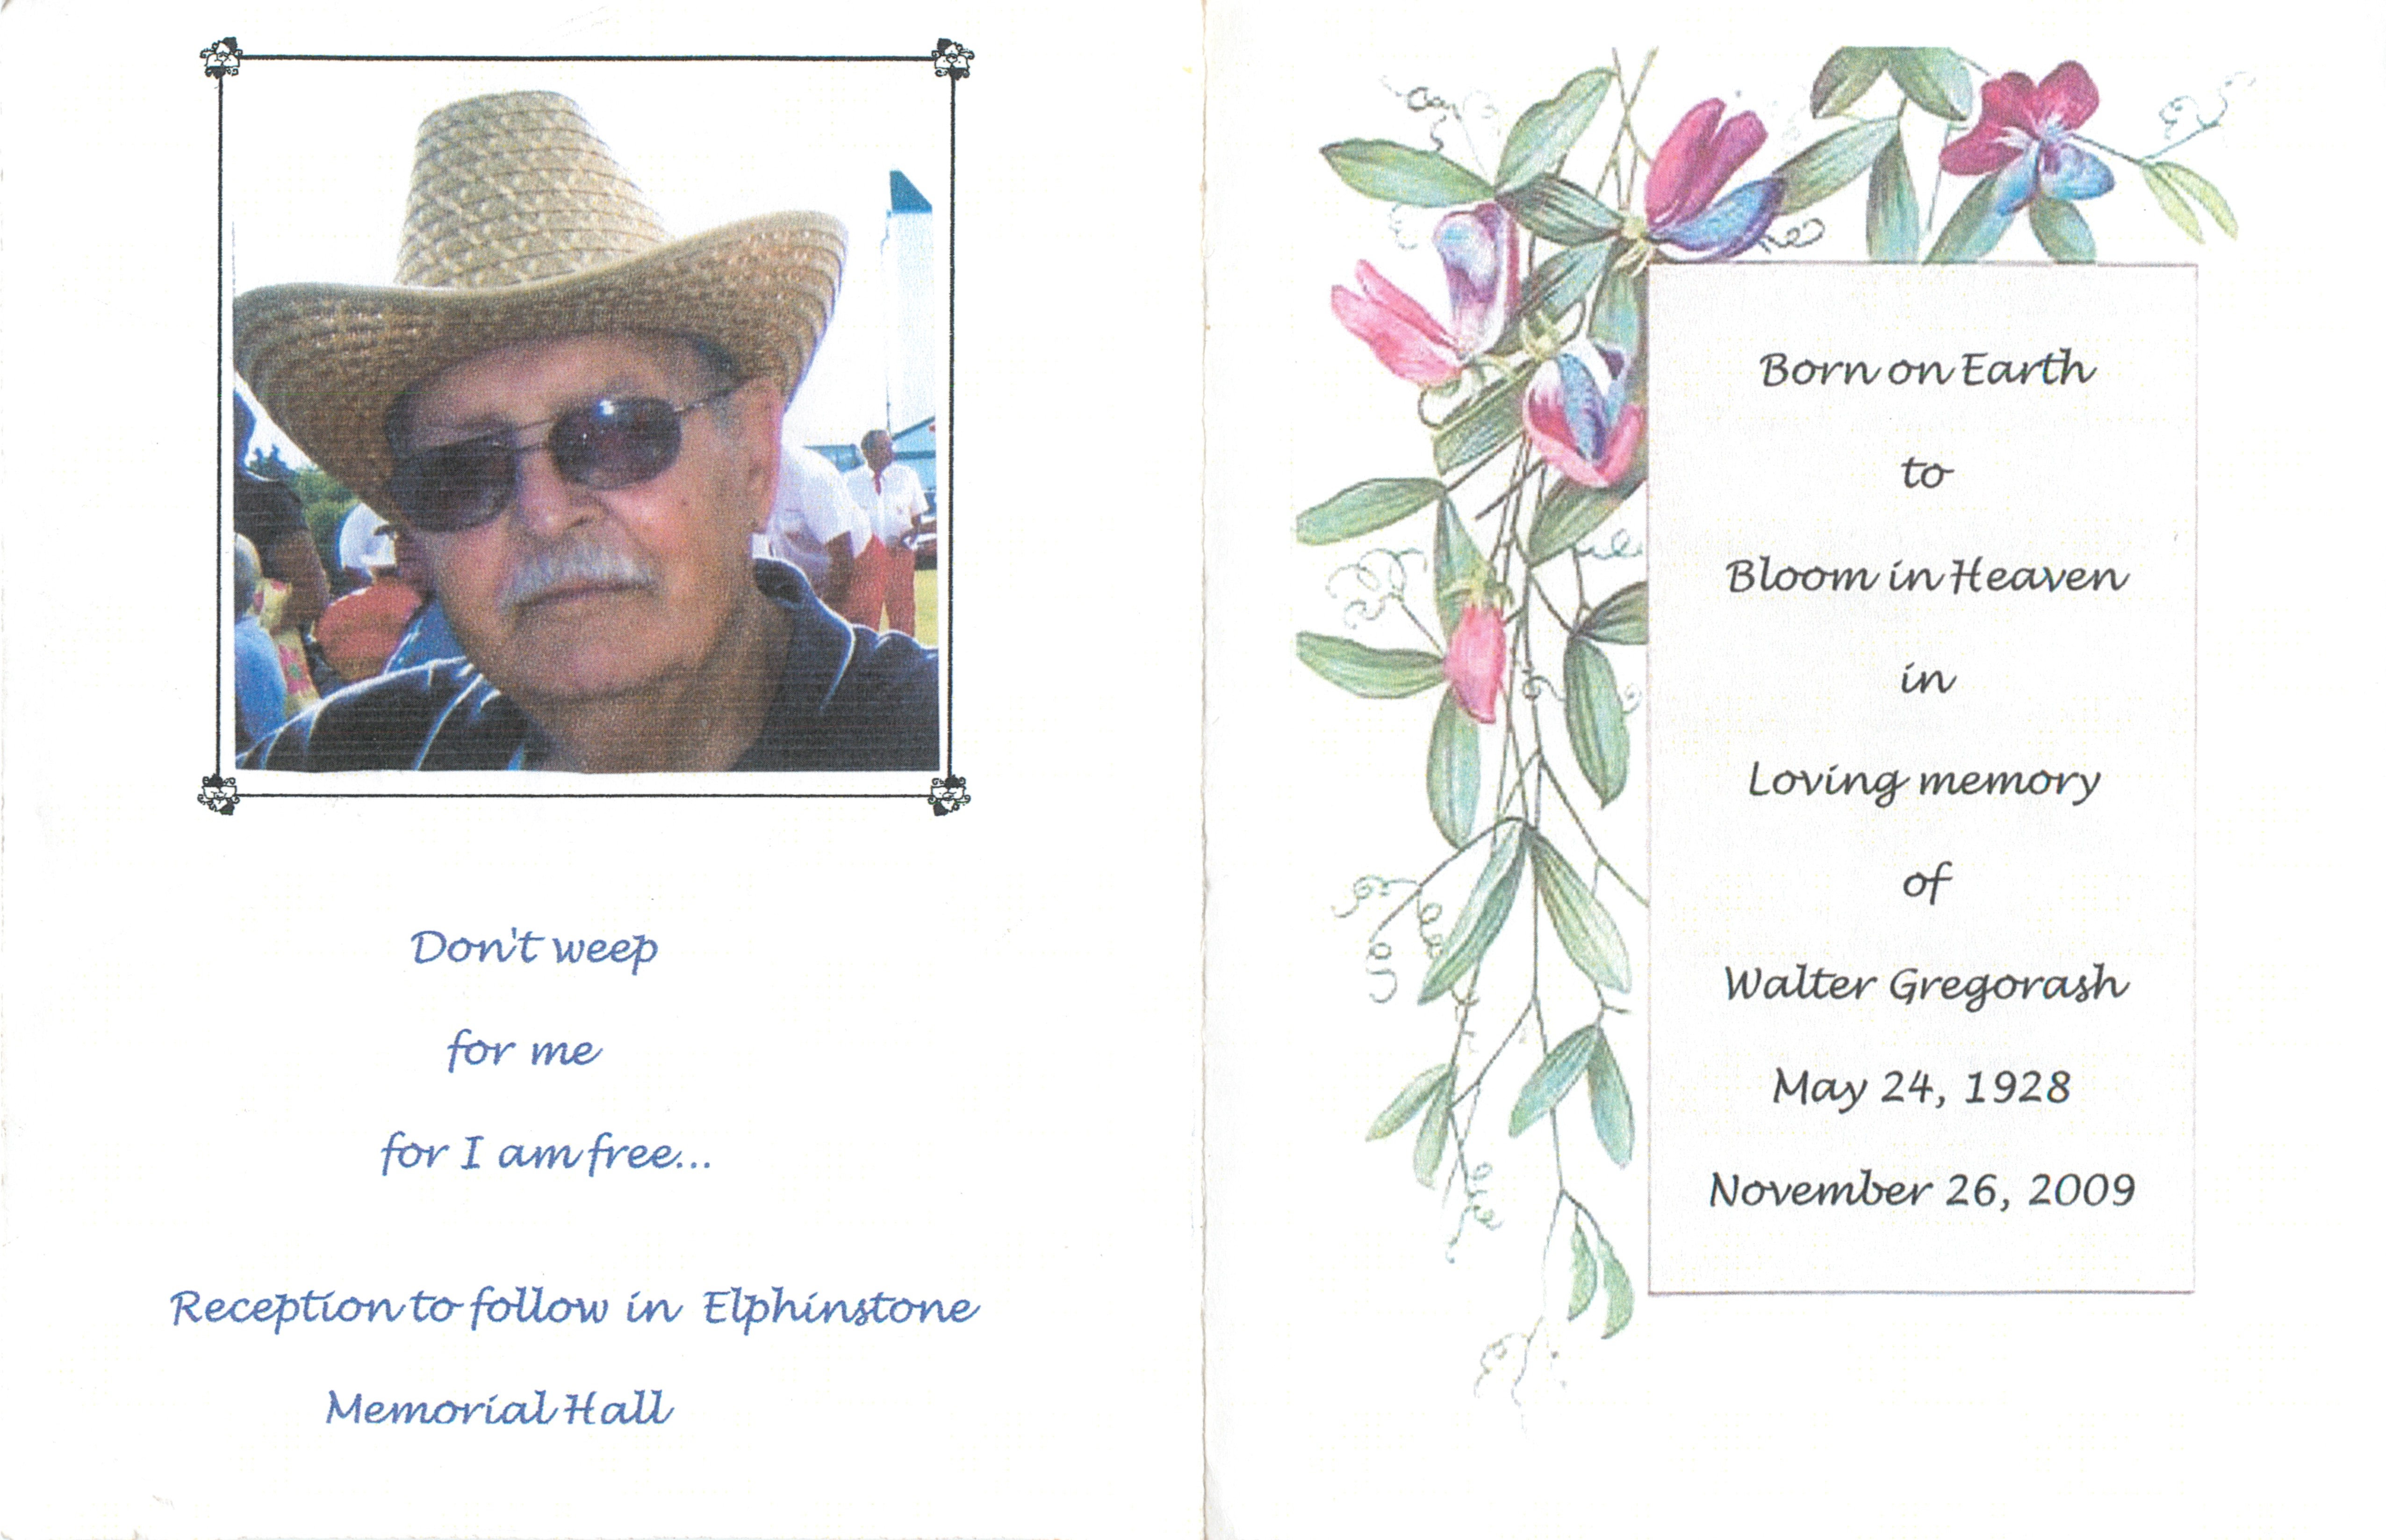 Don't weep
for me
for I am free...
Reception to follow in Elphinstone
Memorial Hall
Born on Earth
to
Bloom in Heaven
in
Loving memory
of
Walter Gregorash
May 24, 1928
November 26, 2009